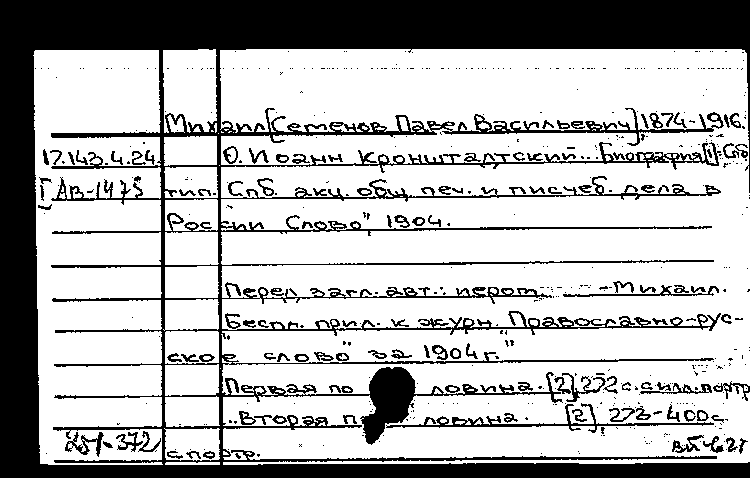 Михаил [Семенов Павел Васильевич] 1874-1916.
17.143.4.24. О. Иоанн Кронштадтский... Биография [1]: Спб
АВ-1475 тип. Спб. акц. общ. печ. и писчеб. дела в
России „Слово", 1904.
Перед загл. авт.: иером. -Михаил.
Беспл. прил. к журн. „Православно-рус-
ское слово" за 1904 г."
Первая по ловина. [2], 272 с. с илл. портр
..Вторая по ловина. [2], 273-400 с
с портр.